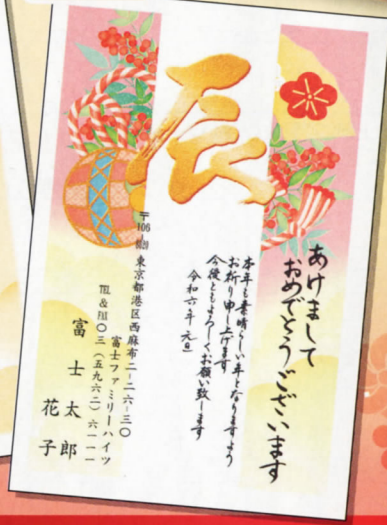 辰
あけまして
おめでとうございます
本年も素晴らしい年となりますよう
お祈り申し上げます
今後ともよろしくお願い致します
令和六年 元旦
東京都港区西麻布二-二六-三〇
富士ファミリーハイツ
TEL & FAX 〇三(五九六二)六一一一
富士太郎
花子